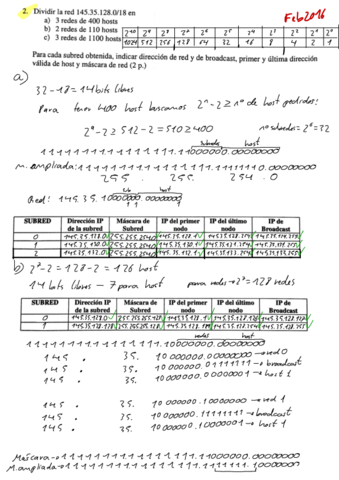 2. Dividir la red 145.35.128.0/18 en
Feb2016
a) 3 redes de 400 hosts
b) 2 redes de 110 hosts
c) 3 redes de 1100 hosts
2¹⁰ 2⁹ 2⁸ 2⁷ 2⁶ 2⁵ 2⁴ 2³ 2² 2¹ 2⁰
1024 512 256 128 64 32 16 8 4 2 1
Para cada subred obtenida, indicar dirección de red y de broadcast, primer y última dirección
válida de host y máscara de red (2 p.)
a)
32-18=14 bits libres
Para tener 400 host buscamos 2ⁿ-2≥nº de host pedidos:
2⁹-2≥512-2=510≥400 nº subredes=2⁵=32
Subredes host
M. ampliada: 11111111.11111111.11111110.00000000
255 . 255 . 254 .0
Sub host
Red: 145.35.10000000.00000000
SUBRED Dirección IP de la subred Máscara de Subred IP del primer nodo IP del último nodo IP de Broadcast
0 145.35.128.0 255.255.254.0 145.35.128.1
1 145.35.130.0 255.255.254.0 145.35.130.1
2 145.35.132.0 255.255.254.0 145.35.132.1
b) 2⁷-2=128-2=126 host
14 bits libres - 7 para host para redes→2⁷=128 redes
SUBRED Dirección IP de la subred Máscara de Subred IP del primer nodo IP del último nodo IP de Broadcast
0 145.35.128.0 145.35.128.1 145.35.128.126 145.35.128.127
1 145.35.128.128 145.35.128.129 145.35.128.254 145.35.128.255
redes host
11111111.11111111.11111111.10000000
145 . 35. 10000000.00000000→red 0
35. 10000000.01111111→broadcast
145 . 35. 10000000.00000001→host 1
145 . 35. 10000000.10000000→red 1
145 . 35. 10000000.11111111→broadcast
145 . 35. 10000000.10000001→host 1
Máscara→11111111.11111111.11000000.00000000
M. ampliada→11111111.11111111.11111111.10000000